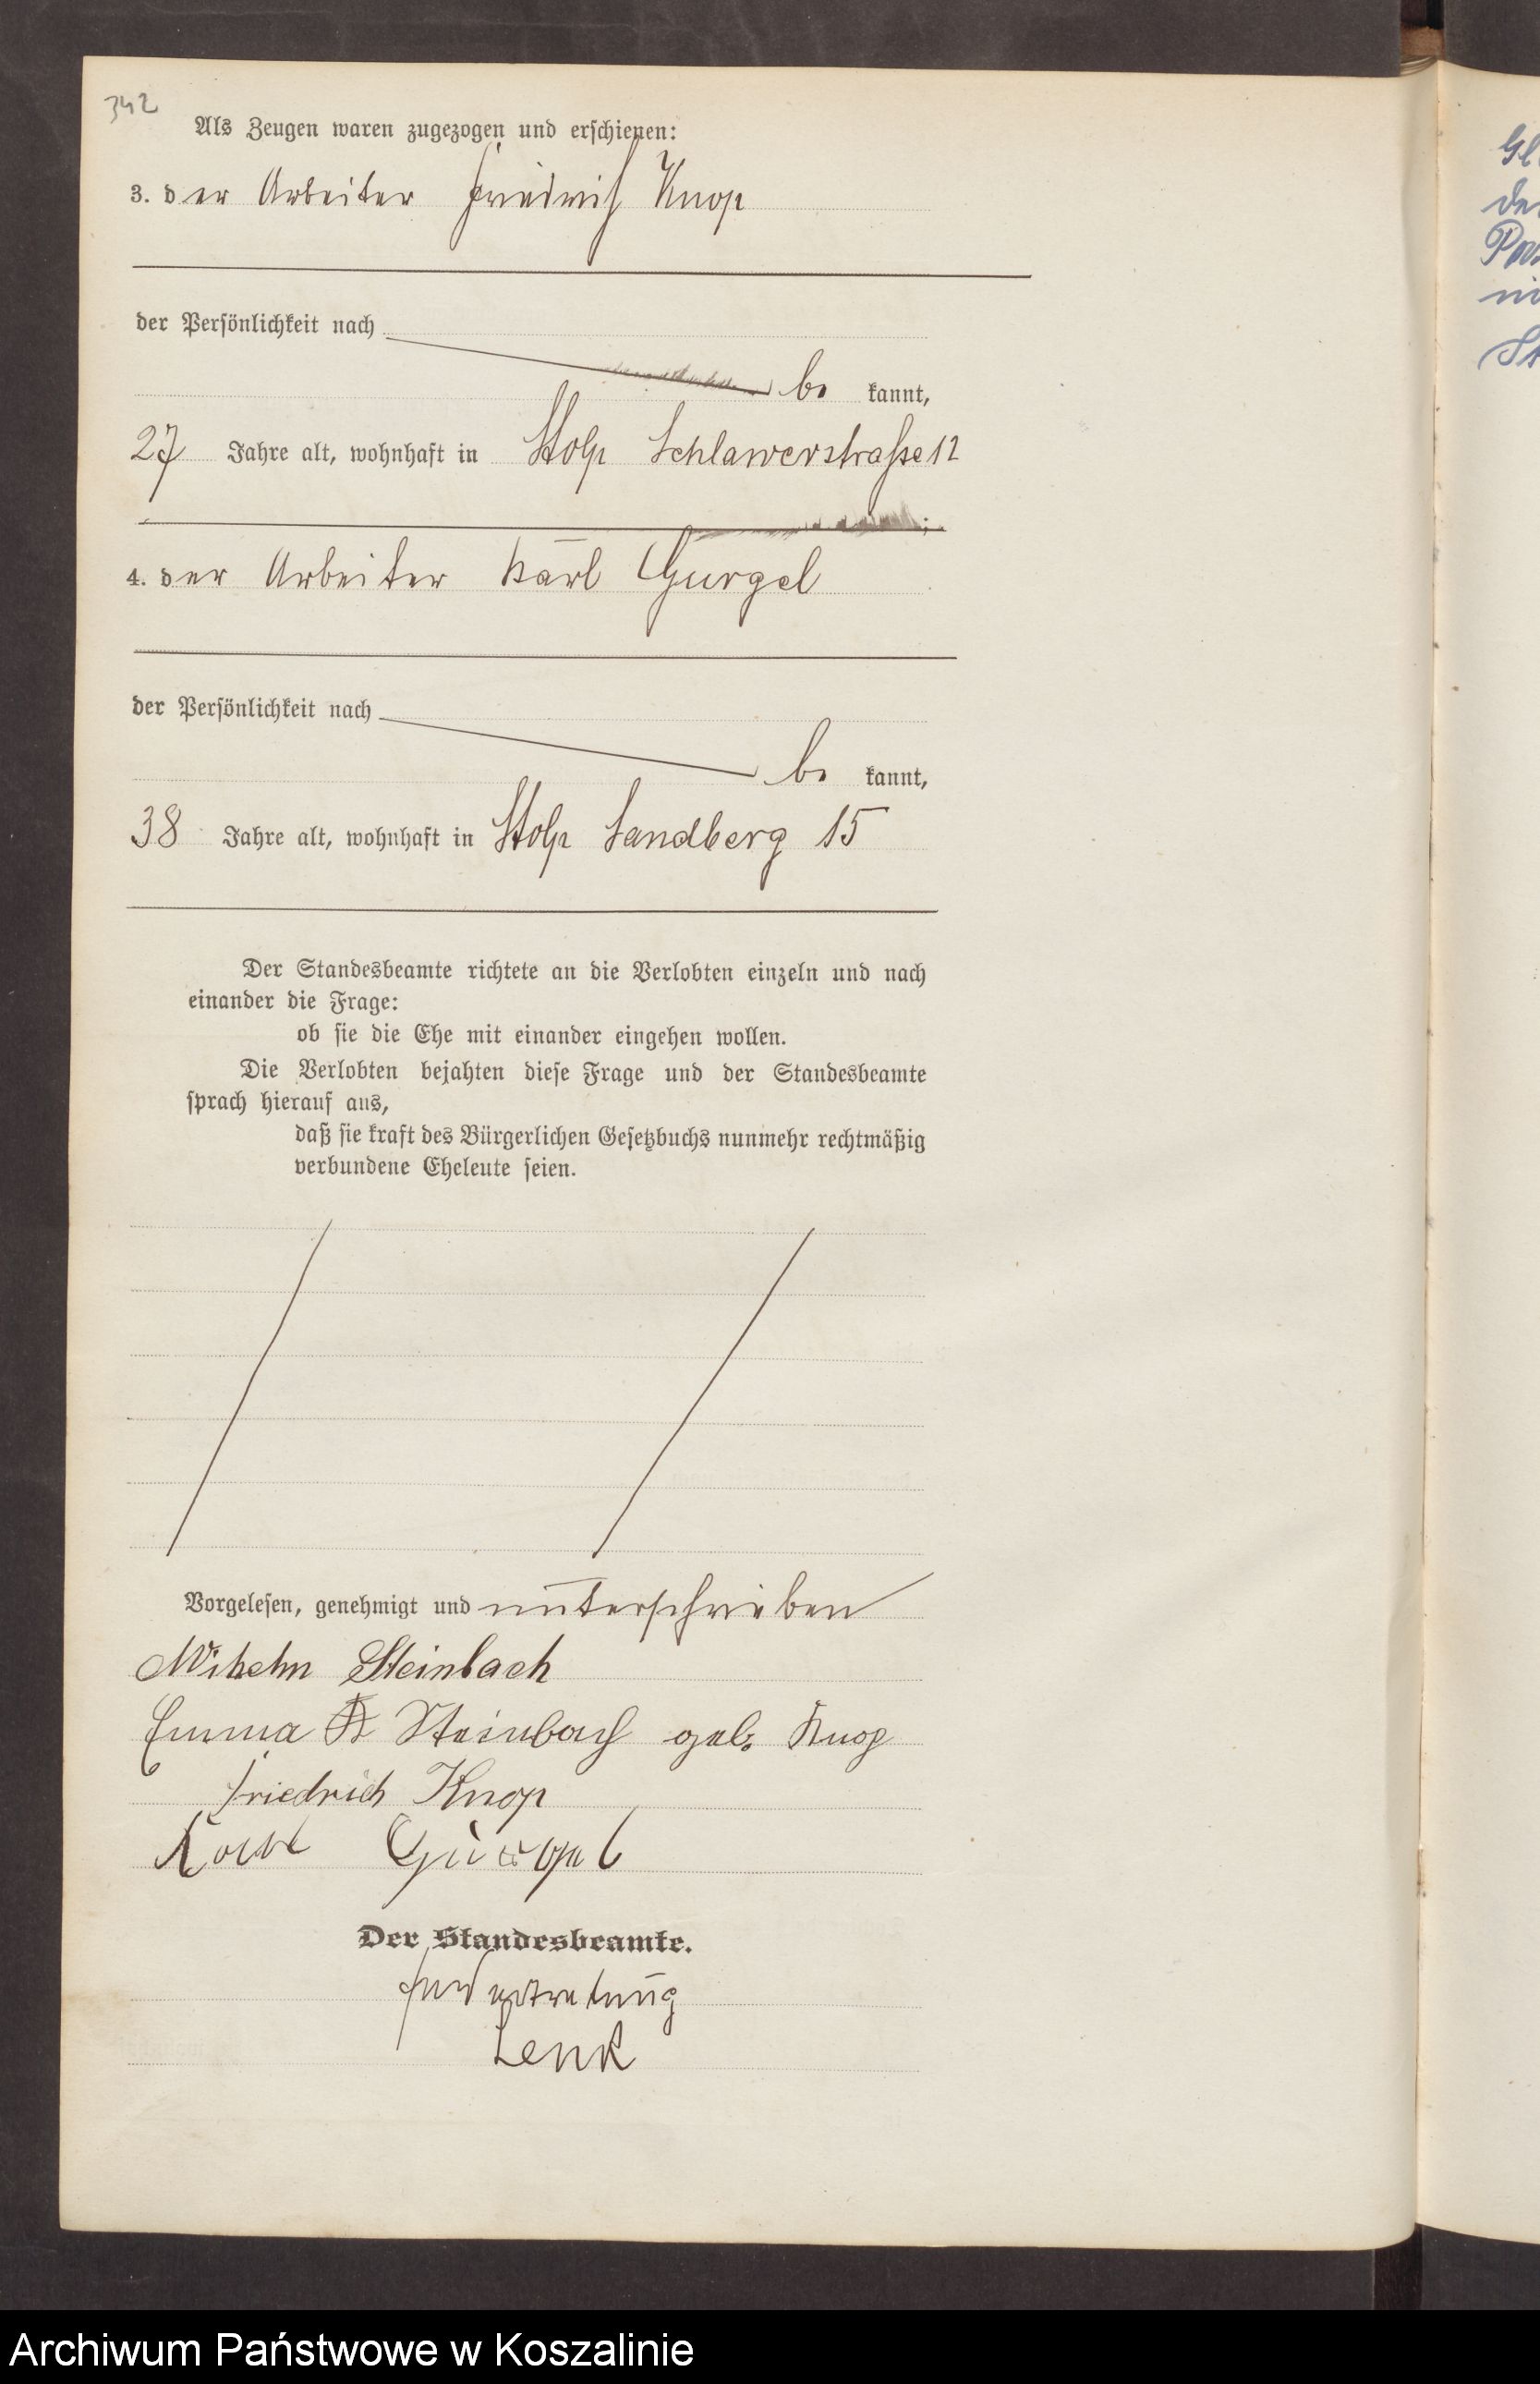 342
Als Zeugen waren zugezogen und erschienen:
3. der Arbeiter Friedrich Knop
der Persönlichkeit nach
be kannt,
27 Jahre alt, wohnhaft in Stolp Schlawerstraße 12
;
4. der Arbeiter Karl Gurgel
der Persönlichkeit nach
be kannt,
38 Jahre alt, wohnhaft in Stolp Sandberg 15
Der Standesbeamte richtete an die Verlobten einzeln und nach
einander die Frage:
ob sie die Ehe mit einander eingehen wollen.
Die Verlobten bejahten diese Frage und der Standesbeamte
sprach hierauf aus,
daß sie kraft des Bürgerlichen Gesetzbuchs nunmehr rechtmäßig
verbundene Eheleute seien.
Vorgelesen, genehmigt und unterschrieben
Wilhelm Steinbach
Emma Steinbach geb. Knop
Friedrich Knop
Karl Gurgel
Der Standesbeamte.
In Vertretung
Lenk
Archiwum Państwowe w Koszalinie